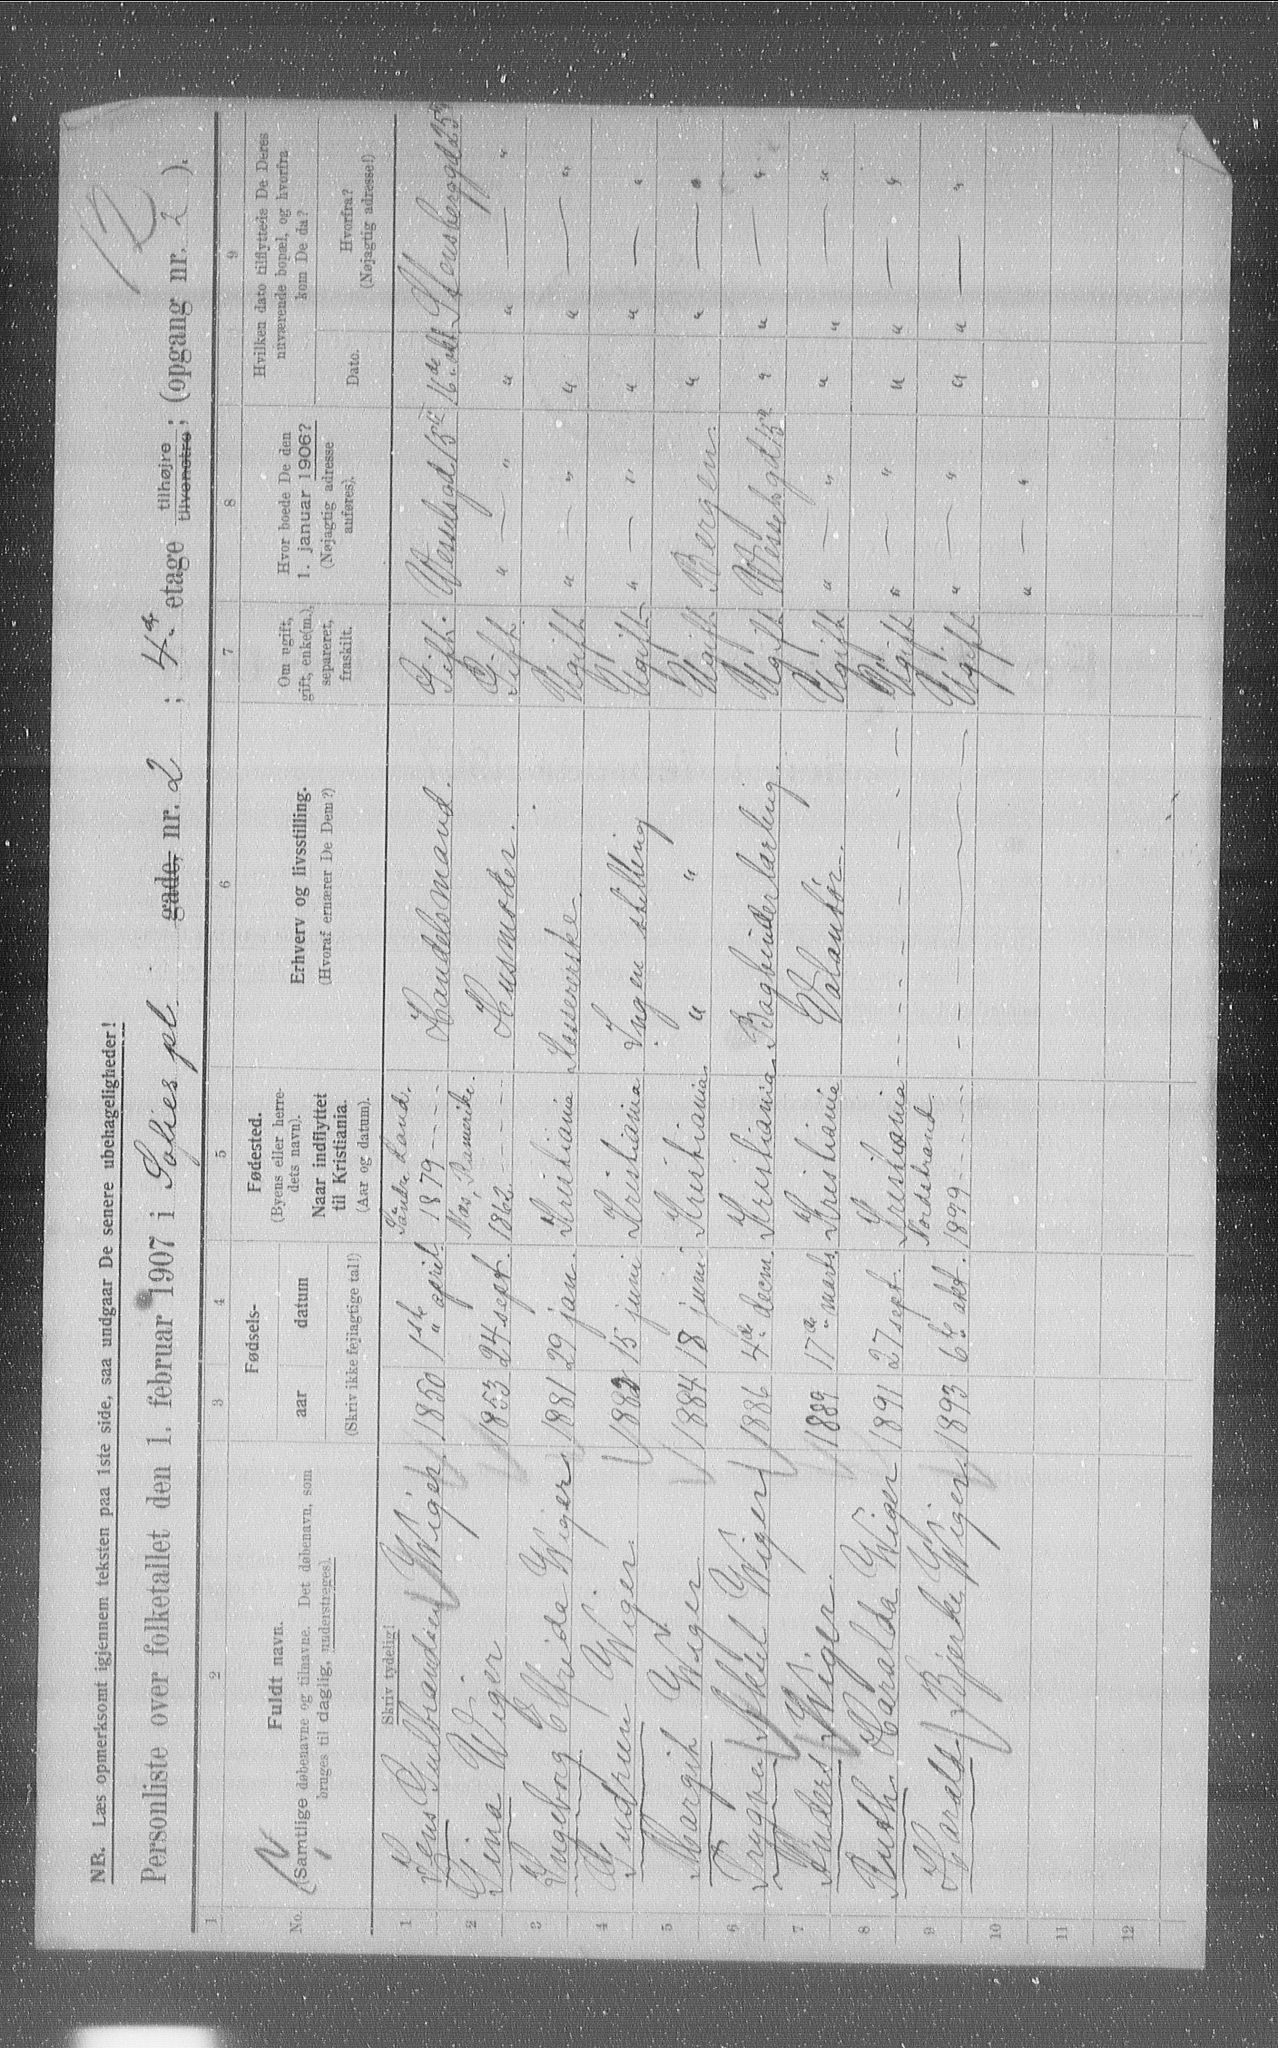 12
NB. Læs opmerksomt igjennem teksten paa 1ste side, saa undgaar De senere ubehageligheder!
Personliste over folketallet den 1. februar 1907 i Sofies pl. gade, nr. 2 ; 4de etage tilhøjre tilvenstre; (opgang nr. 2 ).
1 2 3 4 5 6 7 8 9
No. Fuldt navn. (Samtlige døbenavne og tilnavne. Det døbenavn, som bruges til daglig, understreges).
Skriv tydelig!
Fødsels- aar datum (Skriv ikke fejlagtige tal!)
Fødested. (Byens eller herredets navn). Naar indflyttet til Kristiania. (Aar og datum).
Erhverv og livsstilling. (Hvoraf ernærer De Dem?)
Om ugift, gift, enke(m.), separeret, fraskilt.
Hvor boede De den 1. januar 1906? (Nøjagtig adresse anføres).
Hvilken dato tilflyttede De Deres nuværende bopæl, og hvorfra kom De da?
Dato. Hvorfra? (Nøjagtig adresse!)
1 Jens Gulbrandsen Wiger 1850 1ste april Søndre Land. 1879 Handelsmand. Gift. Wesselsgd 15 Stensberggd 25
2 Lina Wiger 1853 24 sept. Næs, Romerike. 1862 Husmoder. Gift. " — " " " — "
3 Ingeborg Elfrida Wiger 1881 29 jan. Kristiania Kassererske. Ugift " — " " " — "
4 Gudrun Wiger 1882 15 juni Kristiania Ingen stilling Ugift " — " " " — "
5 Margit Wiger 1884 18 juni Kristiania " " Ugift Bergen. " " — "
6 Trygve Askel Wiger 1886 4de decm. Kristiania Bagbinderlærling. Ugift Wesselsgd 15 " " — "
7 Anders Wiger. 1889 17de marts Kristiania Volantør. Ugift " — " " " — "
8 Ruth Haralda Wiger 1891 27 sept. Kristiania Ugift " — " " " — "
9 Harald Bjerke Wiger 1893 6te okt. Nordstrand. 1899 Ugift " — " " " — "
10 " — "
11
12